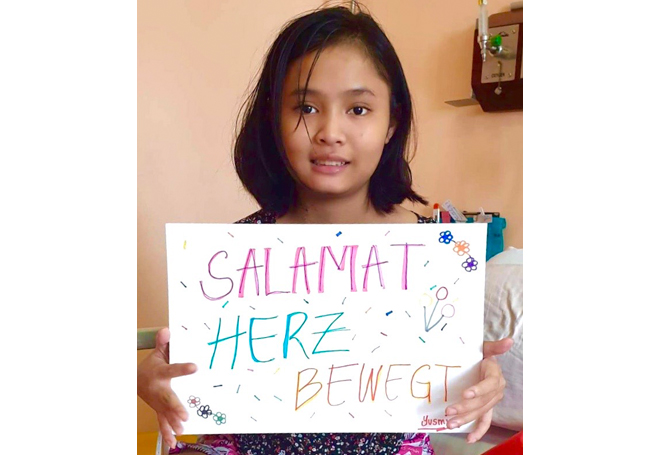 SALAMAT
HERZ
BEWEGT